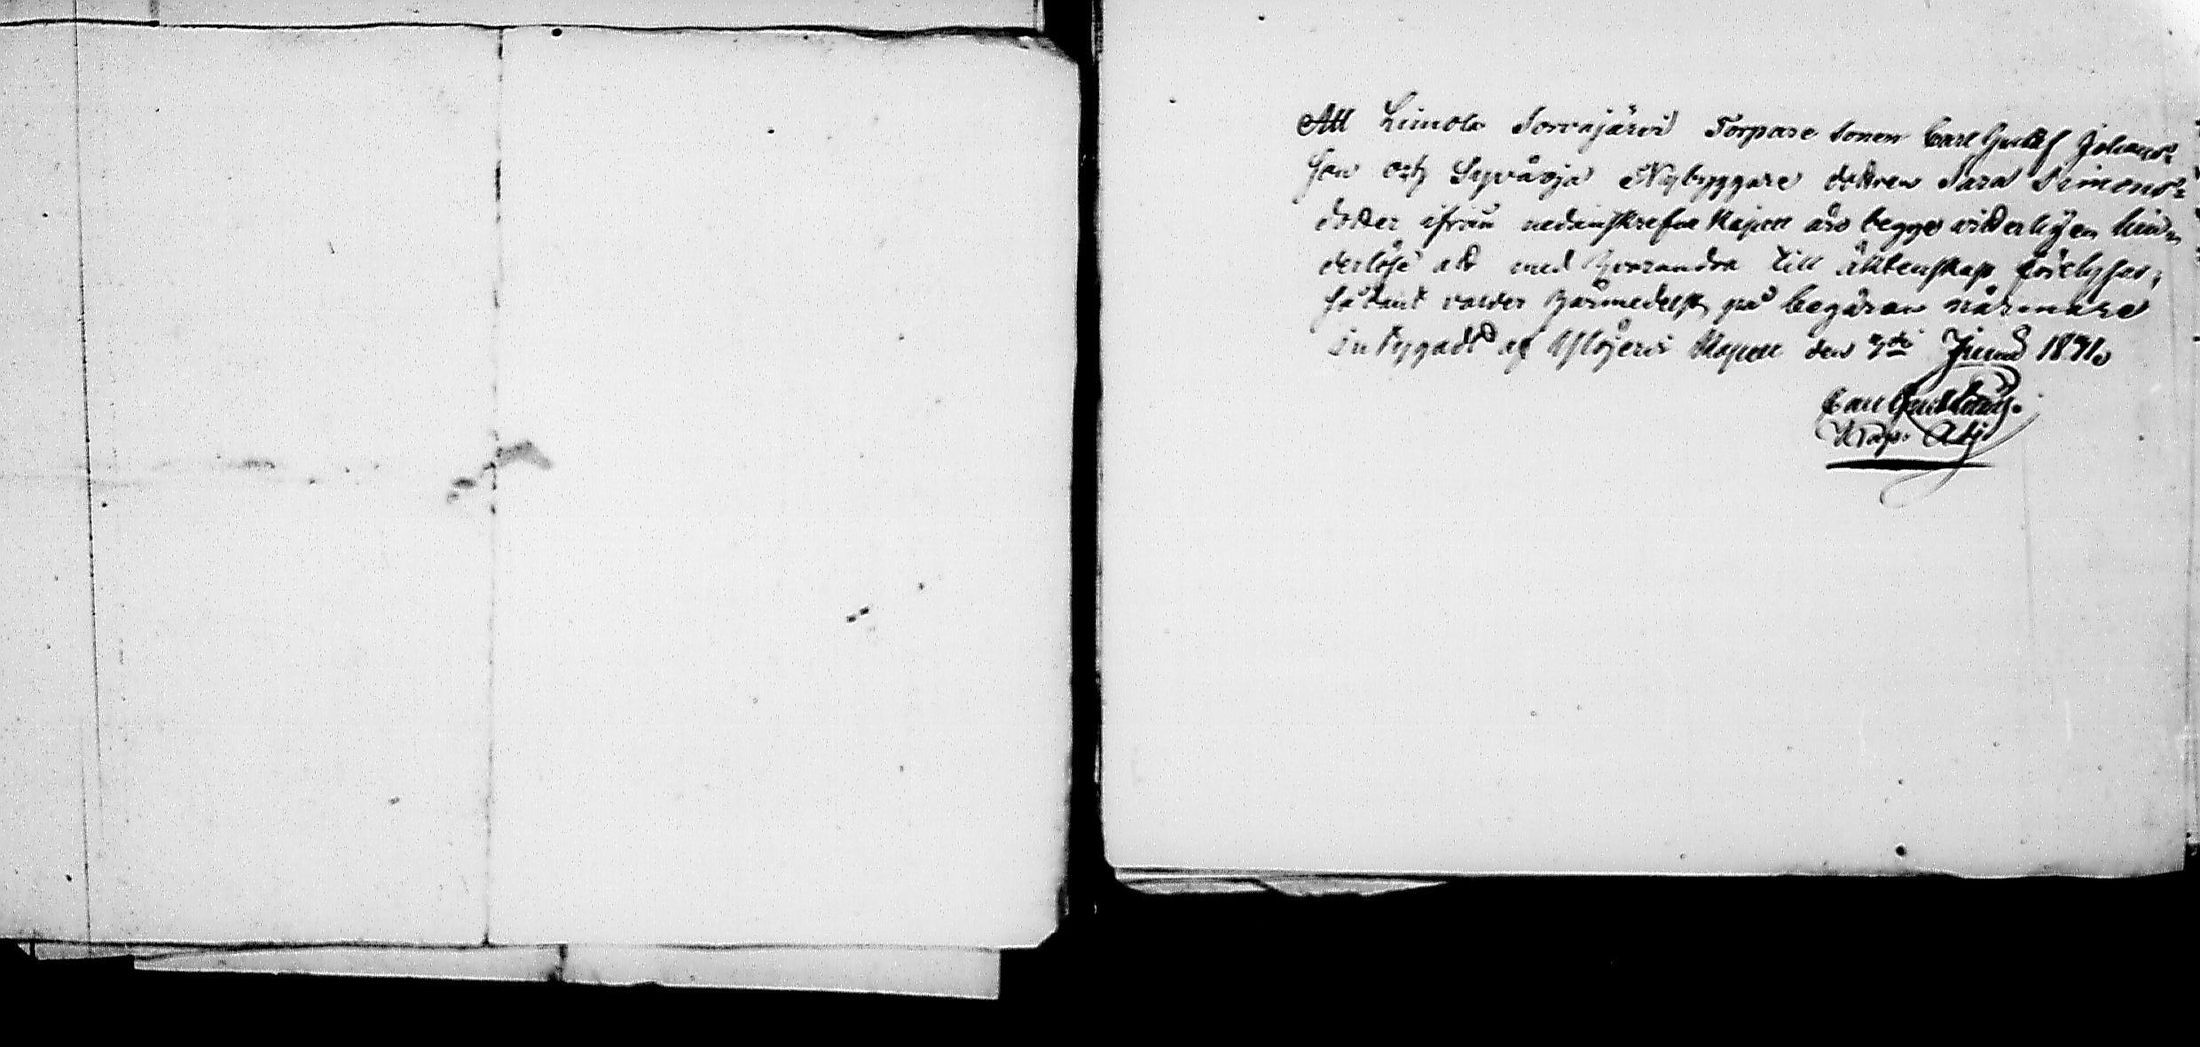 Att Limola Sorvajärvi Torpare sonen Carl Gustaf Johans-
son och Syväoja Nybyggare dottren Sara Simons-
dotter ifrån nedanskrefne Kapell äro begge vitterligen hin-
derlöse att med hvarandra till äktenskap förelysas,
sådant varder härmedelst på begäran närmare
intygadt af Ylöjervi Kapell den 7de Junii 1841.
Carl Gust
Kap. Adj